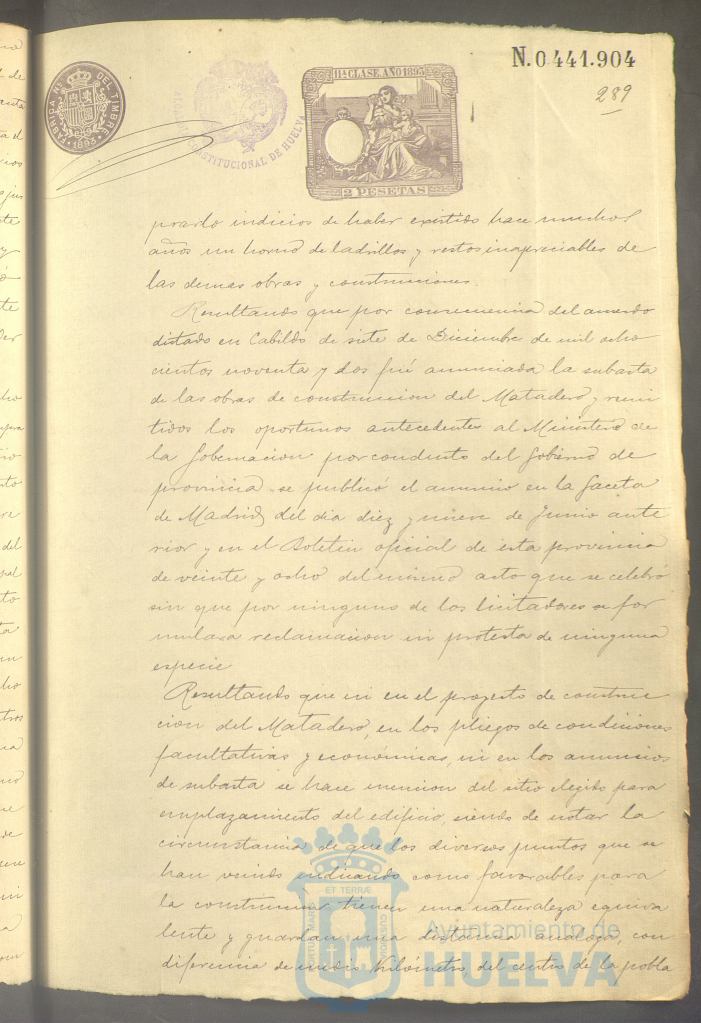 N.0441.904
289
FABRICA NAL DEL TIMBRE
1893
ALCALDIA CONSTITUCIONAL DE HUELVA
11ª CLASE. AÑO 1893
2 PESETAS
indicios de haber existido hace muchos
años un horno de ladrillos y restos inapreciables de
las demas obras y construcciones.
Resultando que por consecuencia del acuerdo
dictado en Cabildo de siete de Diciembre de mil ocho
cientos noventa y dos fué anunciada la subasta
de las obras de construccion del Matadero, y remi
tidos los oportunos antecedentes al Ministerio de
la Gobernacion por conducto del Gobierno de
provincia se publicó el anuncio en la Gaceta
de Madrid del dia diez y nueve de Junio ante
rior y en el Boletin oficial de esta provincia
de veinte y ocho del mismo acto que se celebró
sin que por ninguno de los licitadores se for
mulara reclamacion ni protesta de ninguna
especie
Resultando que ni en el proyecto de construc
cion del Matadero, en los pliegos de condiciones
facultativas y económicas, ni en los anuncios
de subasta se hace mencion del sitio elegido para
emplazamiento del edificio, siendo de notar la
circunstancia de que los diversos puntos que se
han venido indicando como favorables para
la construccion tienen una naturaleza equiva
lente y guardan una distancia análoga, con
diferencia de medio Kilómetro, del centro de la pobla
PORTUS MARIS ET TERRÆ CUSTODIA
Ayuntamiento de
HUELVA